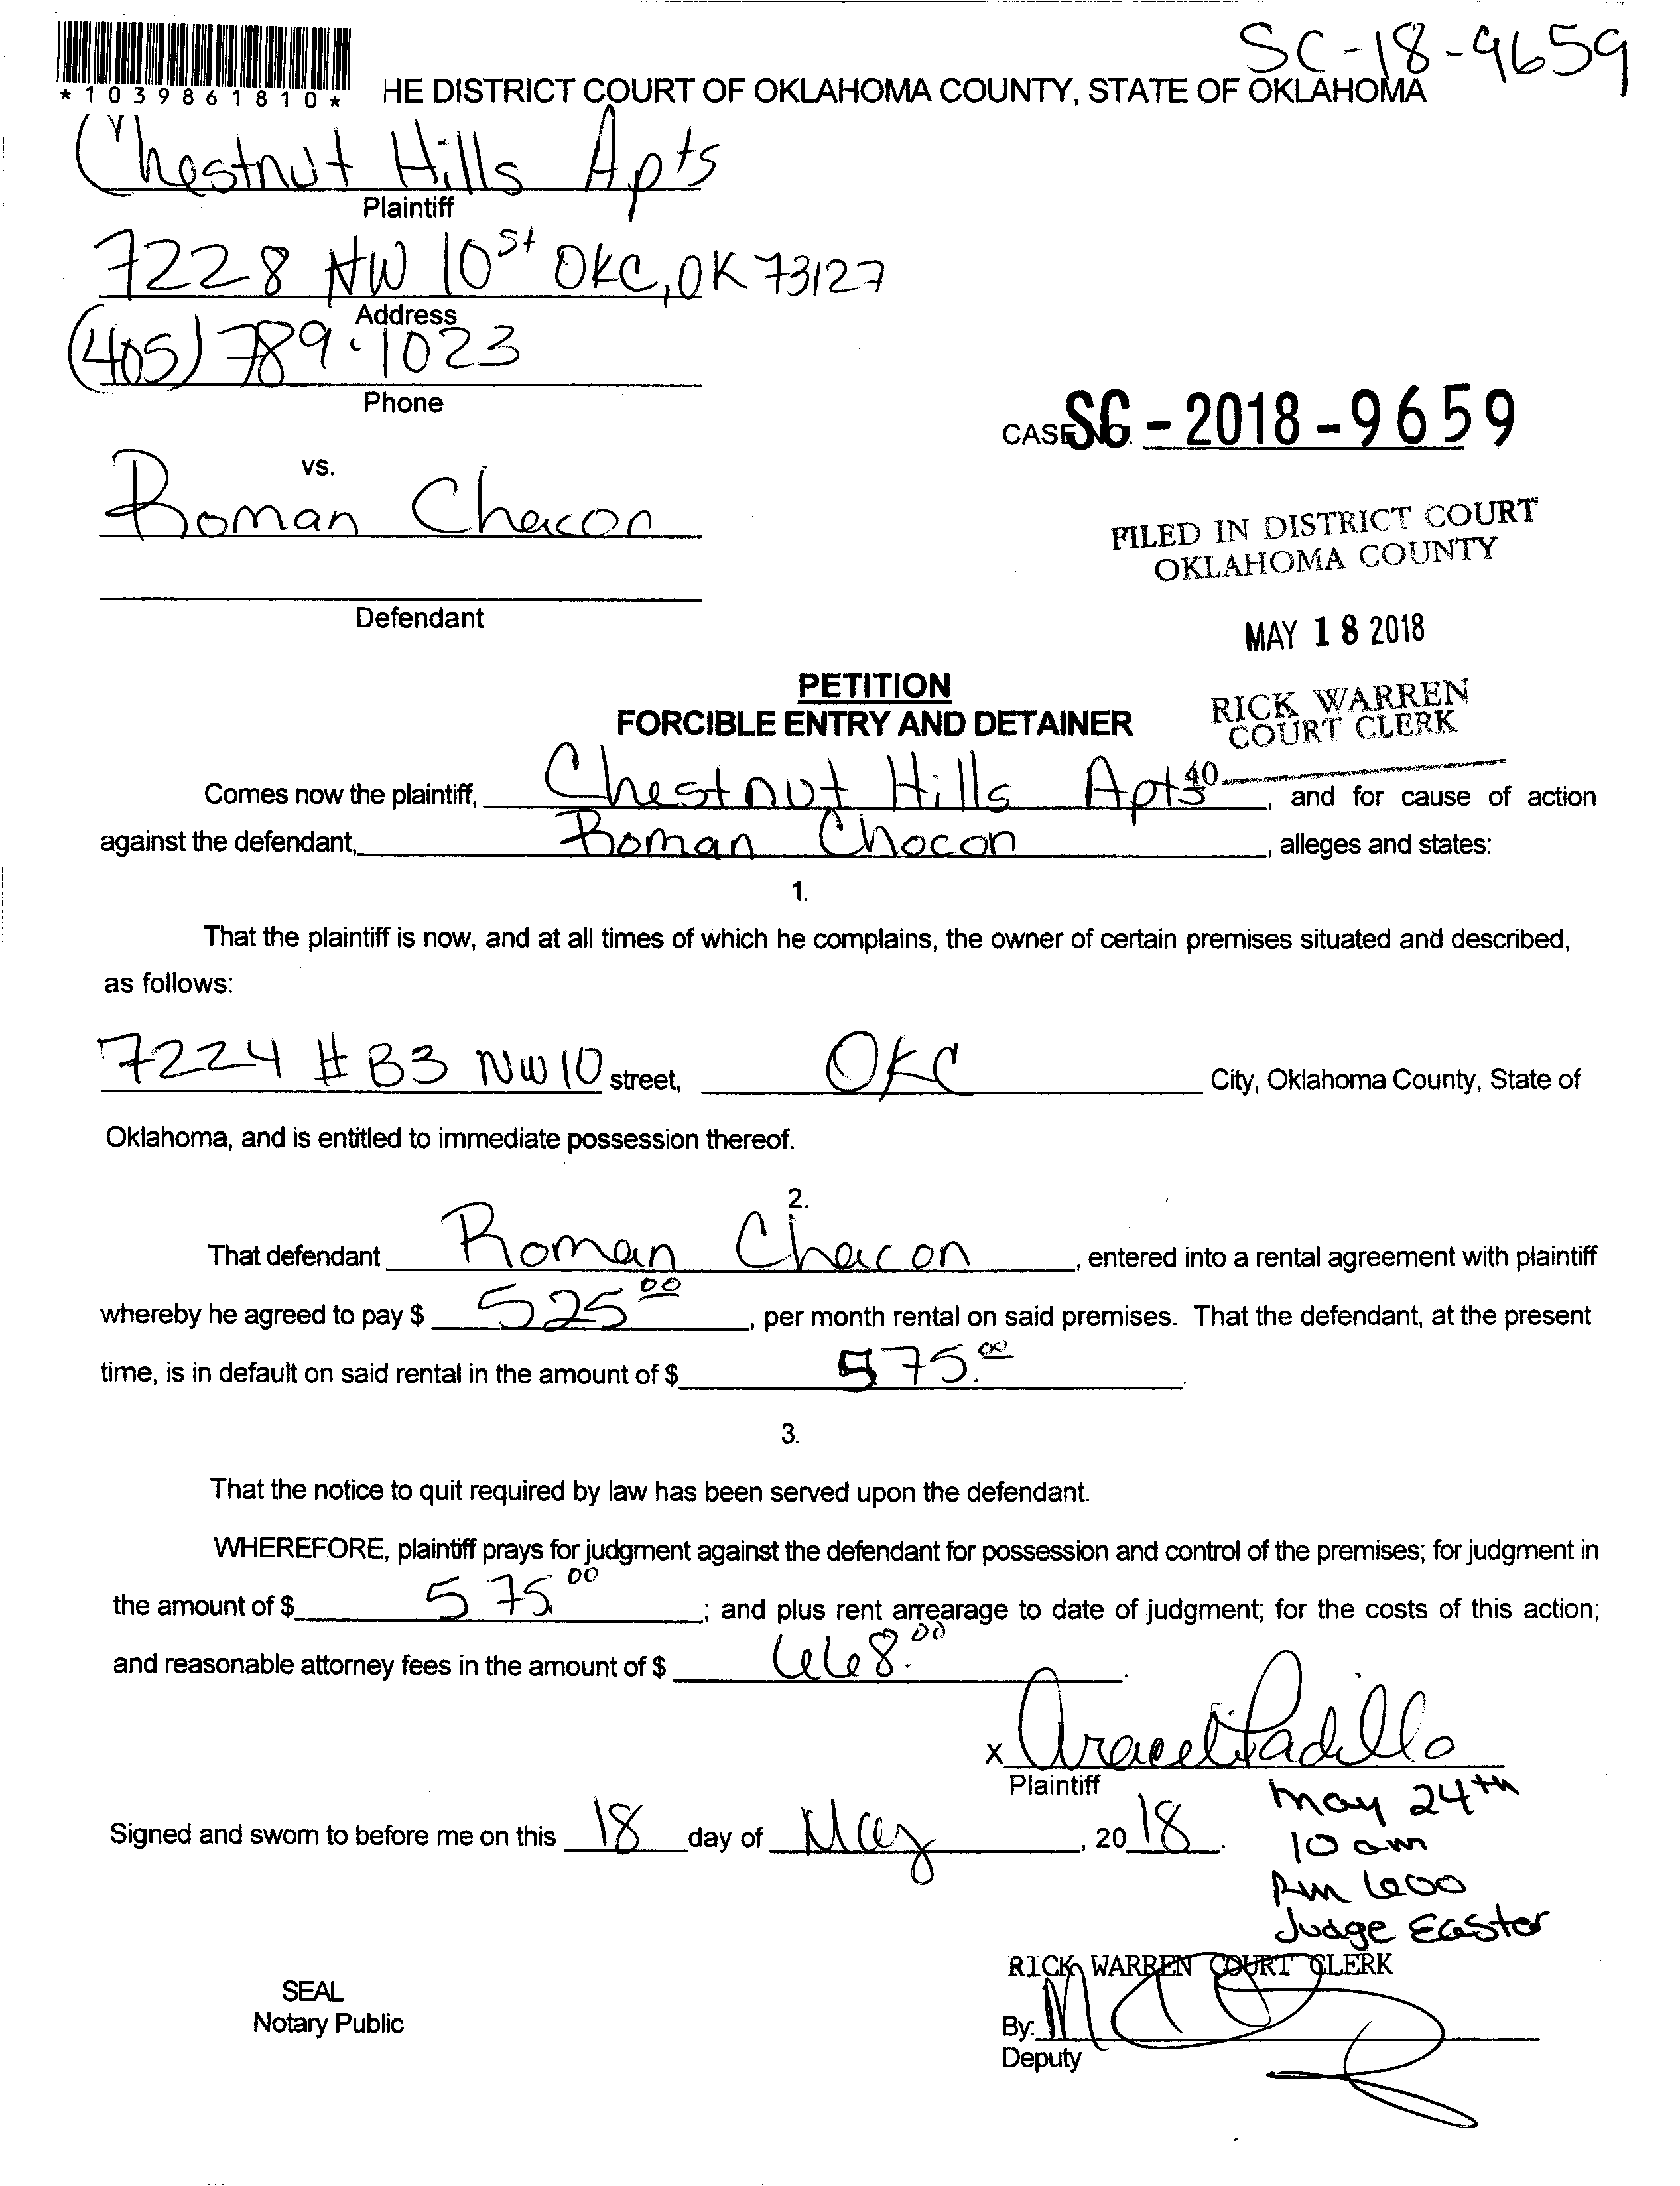 SC-18-9659
*1039861810*
HE DISTRICT COURT OF OKLAHOMA COUNTY, STATE OF OKLAHOMA
Chestnut Hills Apts
Plaintiff
7228 NW 10st OKC, OK 73127
Address
(405) 789-1023
Phone
CASE NO. SC-2018-9659
vs.
Roman Chacon
FILED IN DISTRICT COURT
OKLAHOMA COUNTY
Defendant
MAY 18 2018
PETITION
RICK WARREN
COURT CLERK
FORCIBLE ENTRY AND DETAINER
40
Comes now the plaintiff, Chestnut Hills Apts, and for cause of action
against the defendant, Roman Chocon, alleges and states:
1.
That the plaintiff is now, and at all times of which he complains, the owner of certain premises situated and described,
as follows:
7224 #B3 NW 10 street, OKC City, Oklahoma County, State of
Oklahoma, and is entitled to immediate possession thereof.
2.
That defendant Roman Chacon, entered into a rental agreement with plaintiff
whereby he agreed to pay $ 525.00, per month rental on said premises. That the defendant, at the present
time, is in default on said rental in the amount of $ 575.00.
3.
That the notice to quit required by law has been served upon the defendant.
WHEREFORE, plaintiff prays for judgment against the defendant for possession and control of the premises; for judgment in
the amount of $ 575.00; and plus rent arrearage to date of judgment; for the costs of this action;
and reasonable attorney fees in the amount of $ 668.00.
x Araceli Padillo
Plaintiff
May 24th
Signed and sworn to before me on this 18 day of May, 2018.
10 am
Rm 600
Judge Easter
RICK WARREN COURT CLERK
SEAL
Notary Public
By:
Deputy